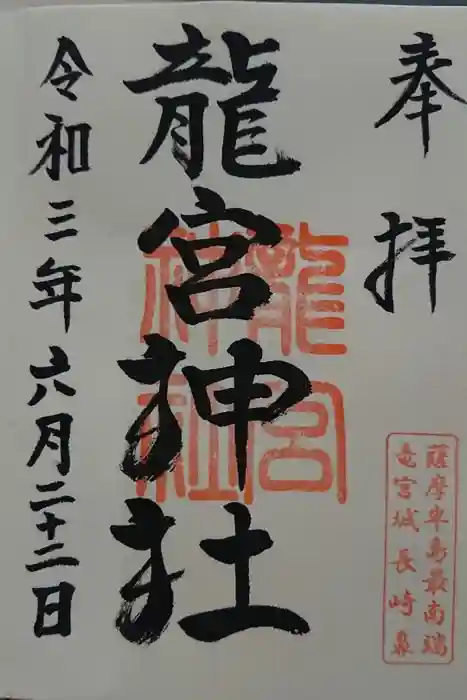 奉拝
龍宮神社
龍宮
神社
令和三年六月二十二日
薩摩半島最南端
竜宮城長崎鼻